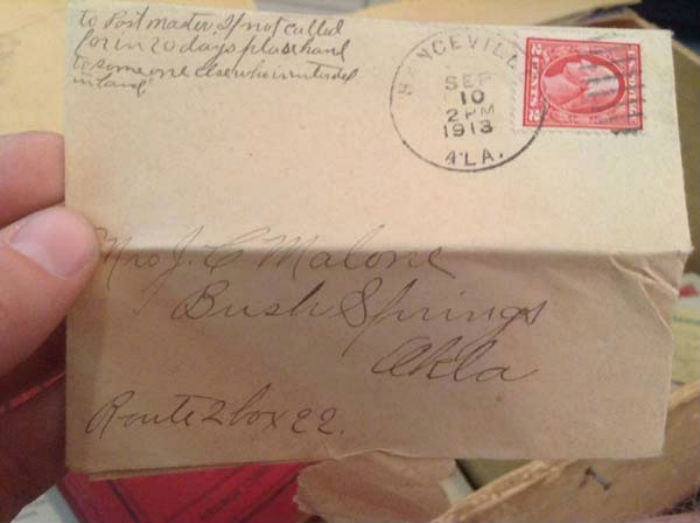 to Post master, If not called
for in 20 days plase hand
to some one else who
in land
HANCEVILL
SEP
10
2 PM
1913
ALA.
2 CENTS 2
Mrs J. C Malone
Bush Springs
Okla
Route 2 box 22.